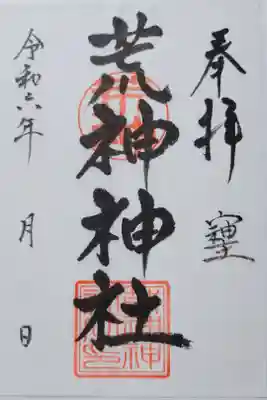 奉拝
荒神神社
令和六年 月 日